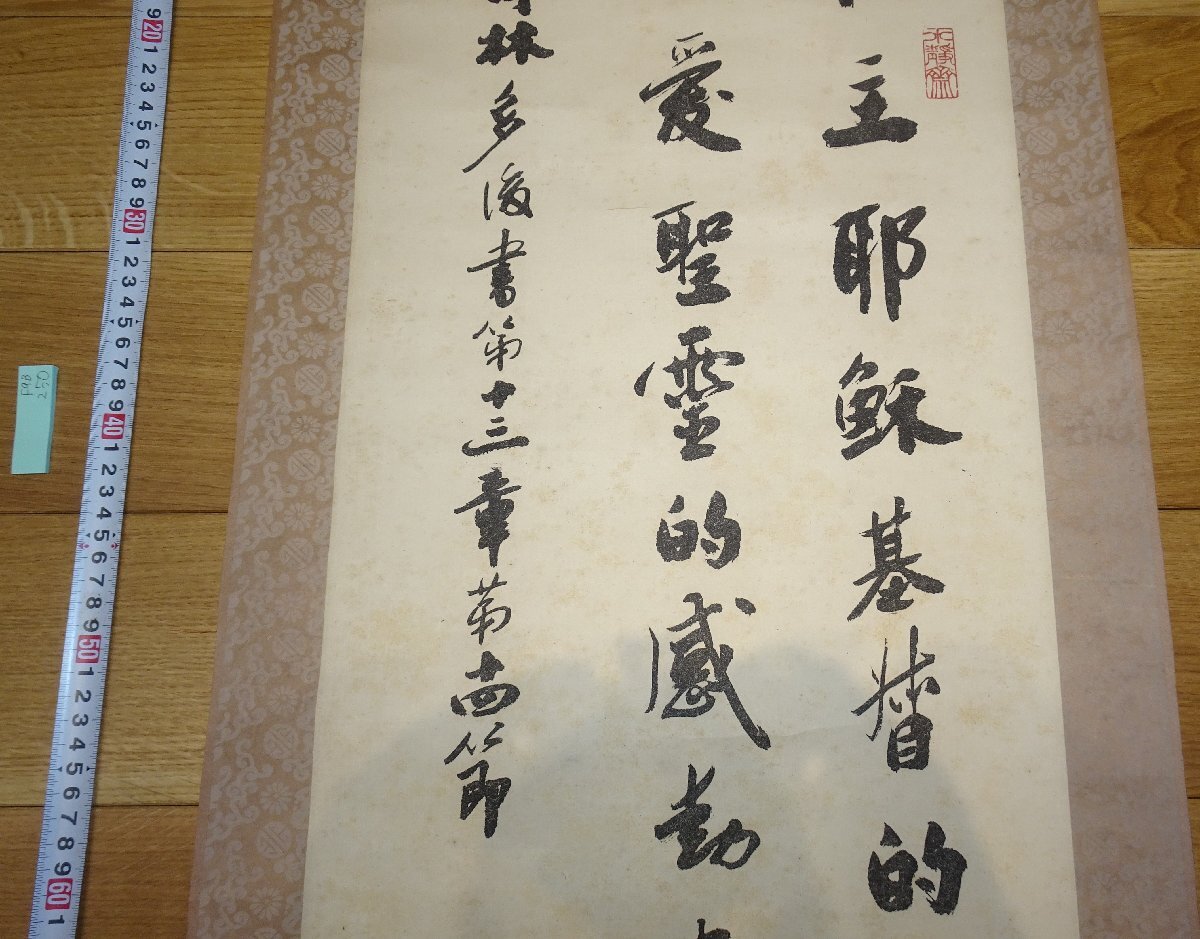 主耶穌基督的
愛聖靈的感動
林多後書第十三章第十四節
9 20 1 2 3 4 5 6 7 8 9 30 1 2 3 4 5 6 7 8 9 40 1 2 3 4 5 6 7 8 9 50 1 2 3 4 5 6 7 8 9 60 1